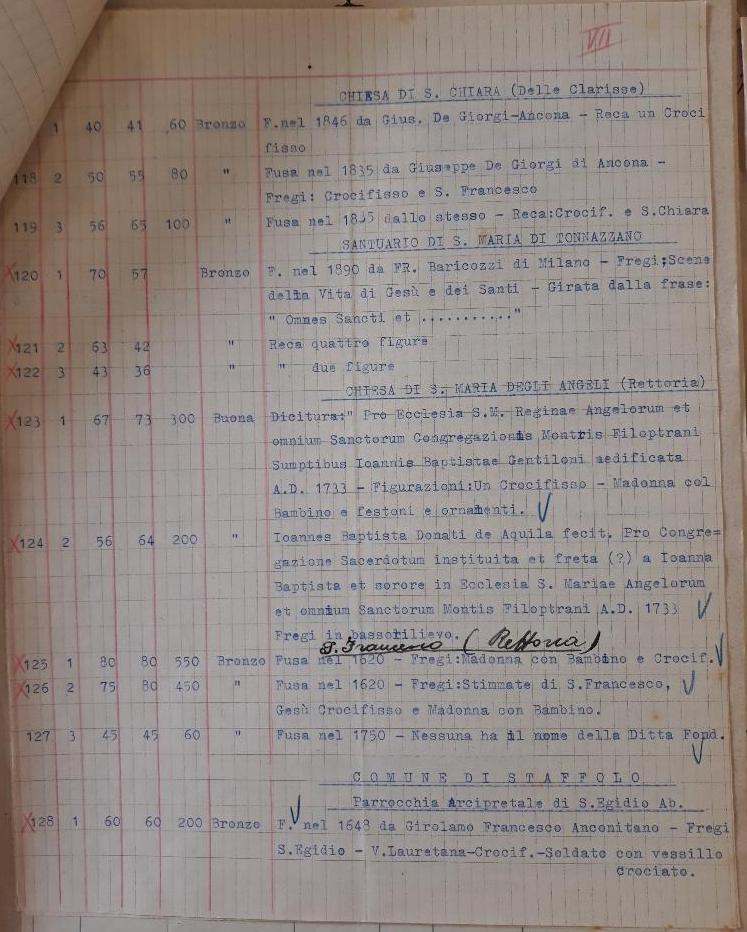 VII
CHIESA DI S. CHIARA (Delle Clarisse)
1 40 41 60 Bronzo F.nel 1846 da Gius. De Giorgi-Ancona - Reca un Croci
fisso
118 2 50 55 80 " Fusa nel 1835 da Giuseppe De Giorgi di Ancona -
Fregi: Crocifisso e S. Francesco
119 3 56 65 100 " Fusa nel 1835 dallo stesso - Reca:Crocif. e S.Chiara
SANTUARIO DI S. MARIA DI TONNAZZANO
X120 1 70 57 Bronzo F. nel 1890 da FR. Baricozzi di Milano - Fregi;Scene
della Vita di Gesù e dei Santi - Girata dalla frase:
" Omnes Sancti et ..........."
X121 2 63 42 " Reca quattro figure
X122 3 43 36 " " due figure
CHIESA DI S. MARIA DEGLI ANGELI (Rettoria)
X123 1 67 73 300 Buona Dicitura:" Pro Ecclesia S.M. Reginae Angelorum et
omnium Sanctorum Congregazionis Montris Filoptrani
Sumptibus Ioannis Baptistae Gentiloni aedificata
A.D. 1733 - Figurazioni:Un Crocifisso - Madonna col
Bambino e festoni e ornamenti.
X124 2 56 64 200 " Ioannes Baptista Donati de Aquila fecit. Pro Congre=
gazione Sacerdotum instituita et freta (?) a Ioanna
Baptista et sorore in Ecclesia S. Mariae Angelorum
et omnium Sanctorum Montis Filoptrani A.D. 1733
Fregi in bassorilievo.
S. Francesco (Rettoria)
X125 1 80 80 550 Bronzo Fusa nel 1620 - Fregi:Madonna con Bambino e Crocif.
X126 2 75 80 450 " Fusa nel 1620 - Fregi:Stimmate di S.Francesco,
Gesù Crocifisso e Madonna con Bambino.
127 3 45 45 60 " Fusa nel 1750 - Nessuna ha il nome della Ditta Fond.
COMUNE DI STAFFOLO
Parrocchia Arcipretale di S.Egidio Ab.
X128 1 60 60 200 Bronzo F. nel 1648 da Girolamo Francesco Anconitano - Fregi
S.Egidio - V.Lauretana-Crocif.-Soldato con vessillo
crociato.